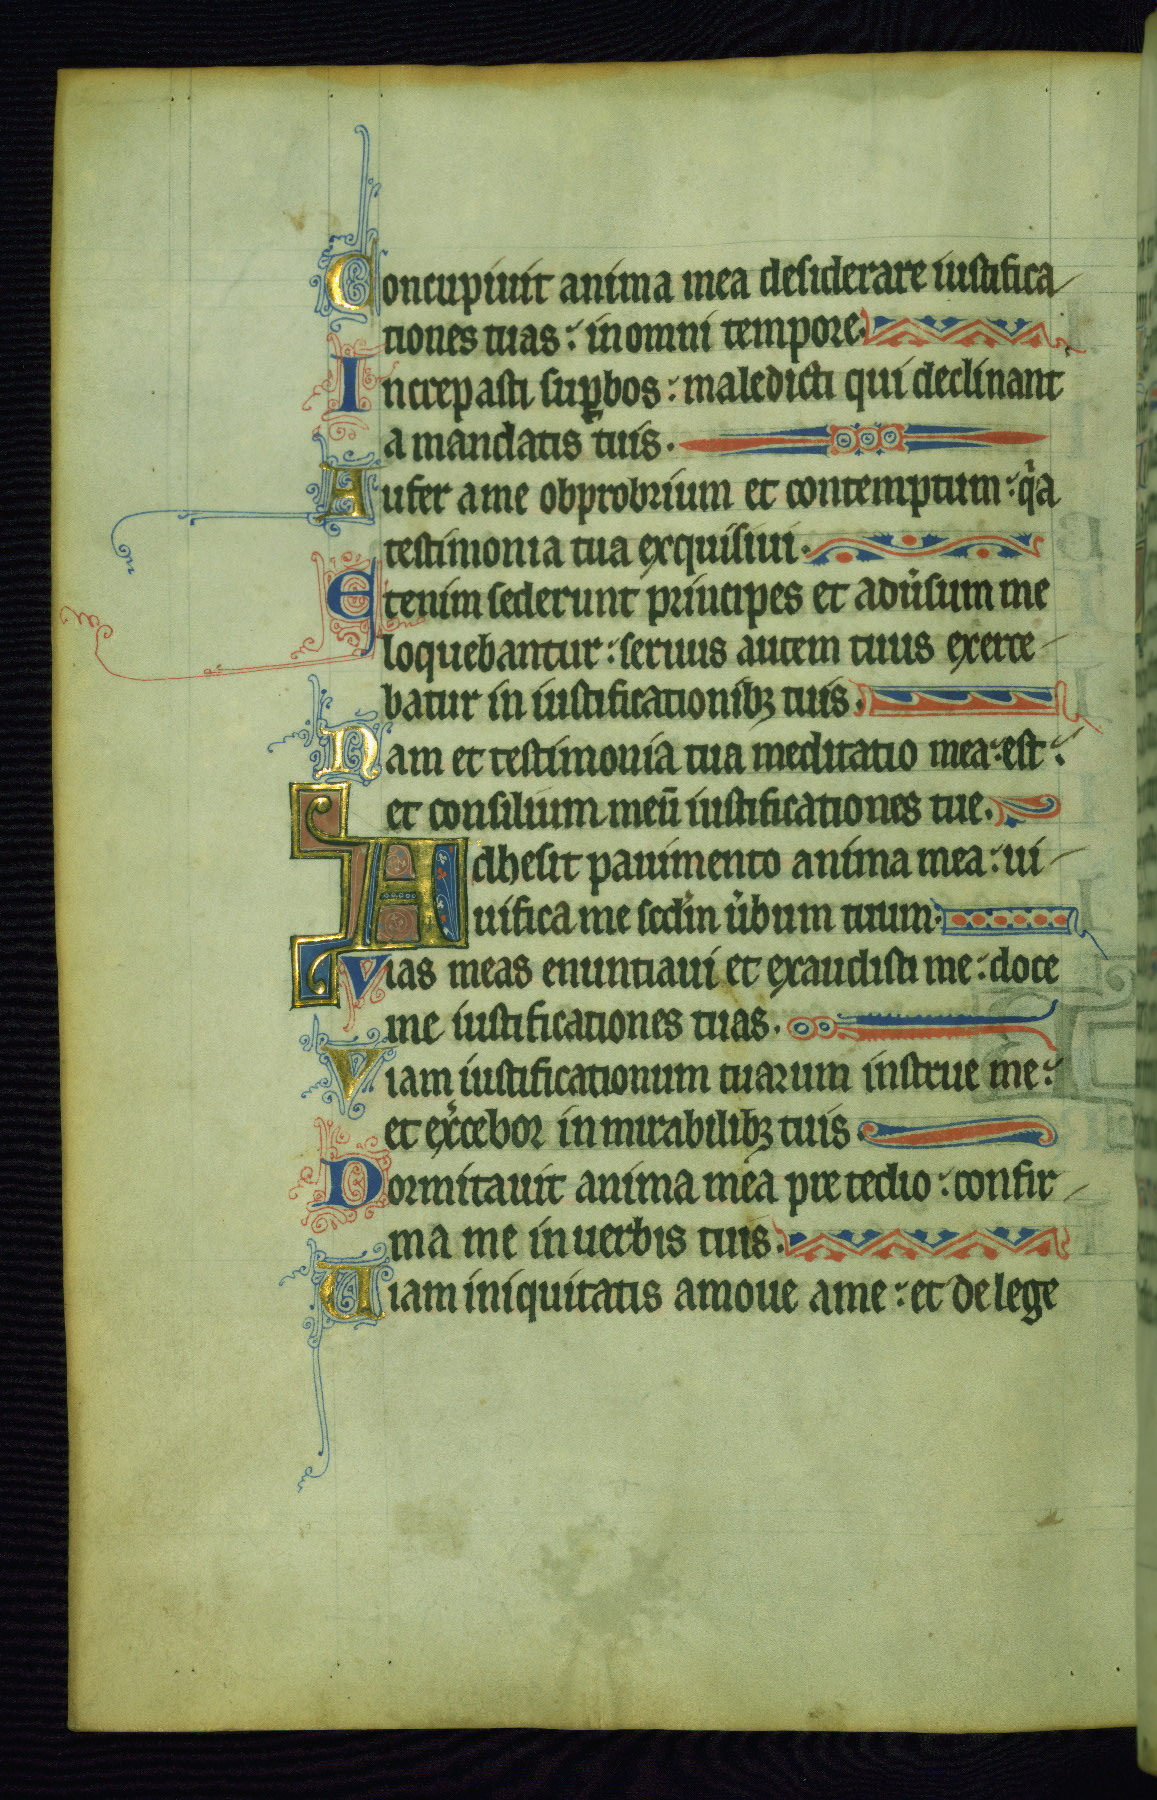 Concupiuit anima mea desiderare iustifica
tiones tuas : in omni tempore.
Increpasti suꝑbos : maledicti qui declinant
a mandatis tuis.
Aufer a me obprobrium et contemptum : qͥa
testimonia tua exquisiui.
Etenim sederunt principes et aduͥsum me
loquebantur : seruus autem tuus exerce
batur in iustificationibꝫ tuis.
Nam et testimonia tua meditatio mea est :
et consilium meū iustificationes tue.
Adhesit pauimento anima mea : ui
uifica me scd'm u'bum tuum.
Vias meas enuntiaui et exaudisti me : doce
me iustificationes tuas.
Viam iustificationum tuarum instrue me :
et ex'cebor in mirabilibꝫ tuis.
Dormitauit anima mea pre tedio : confir
ma me in uerbis tuis.
Uiam iniquitatis amoue a me : et de lege